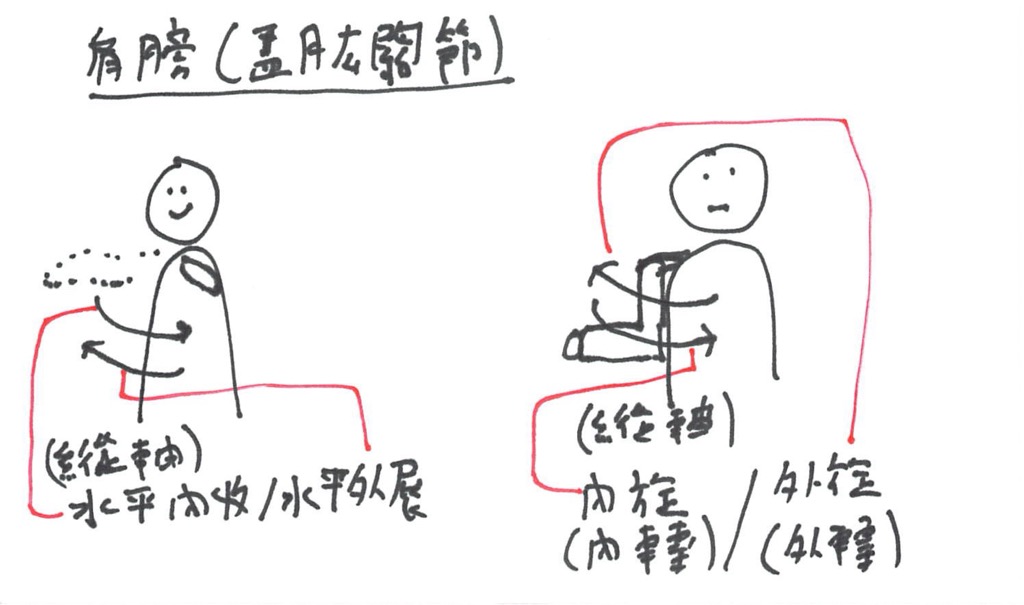 肩膀(盂肱關節)
(縱軸)
水平內收/水平外展
(縱軸)
內旋/外旋
(內轉)/(外轉)